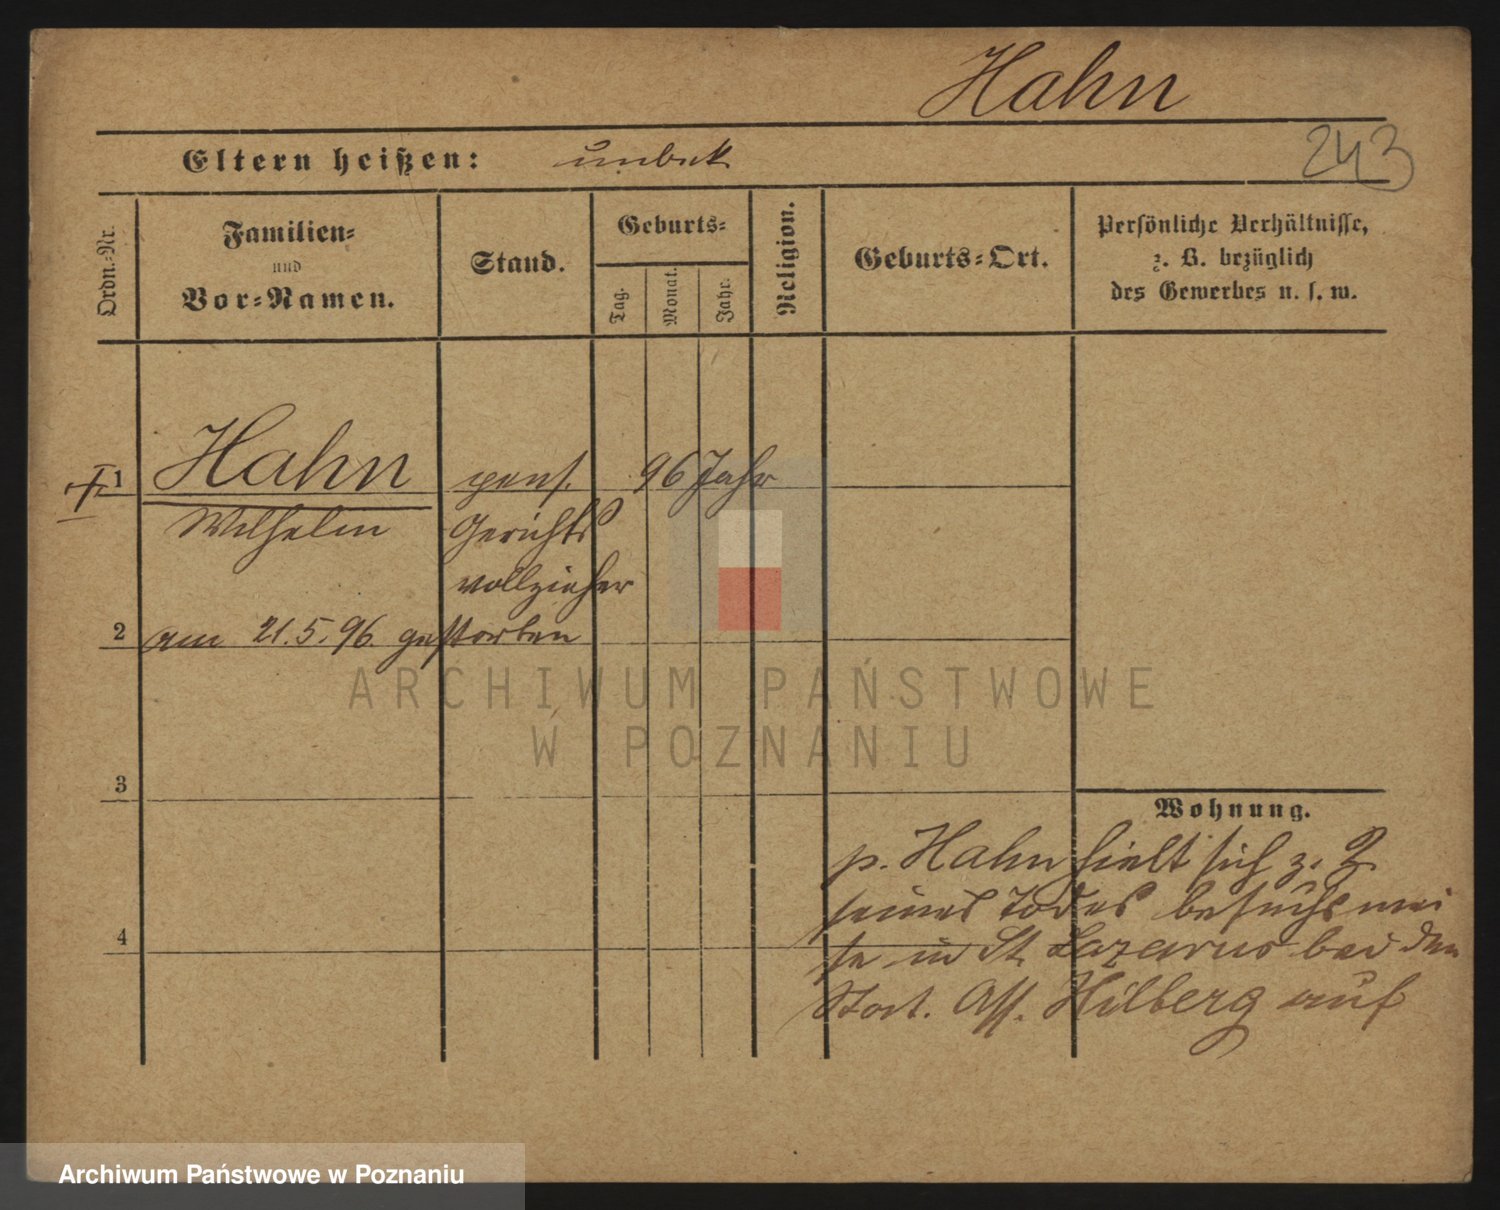 Hahn
243
Eltern heißen: unbek
Ordn.-Nr.
Familien-
und
Vor-Namen.
Stand.
Geburts-
Tag.
Monat.
Jahr.
Religion.
Geburts-Ort.
Persönliche Verhältnisse,
z. B. bezüglich
des Gewerbes u. s. w.
1 Hahn pens. 96 Jahr
Wilhelm Gerichts
vollzieher
2 am 21.5.96. gestorben
ARCHIWUM PAŃSTWOWE
W POZNANIU
3
Wohnung.
p. Hahn hielt sich z. Z.
seines Todes besuchswei
4
se in St. Lazarus bei dem
Ass. Hilberg auf
Archiwum Państwowe w Poznaniu